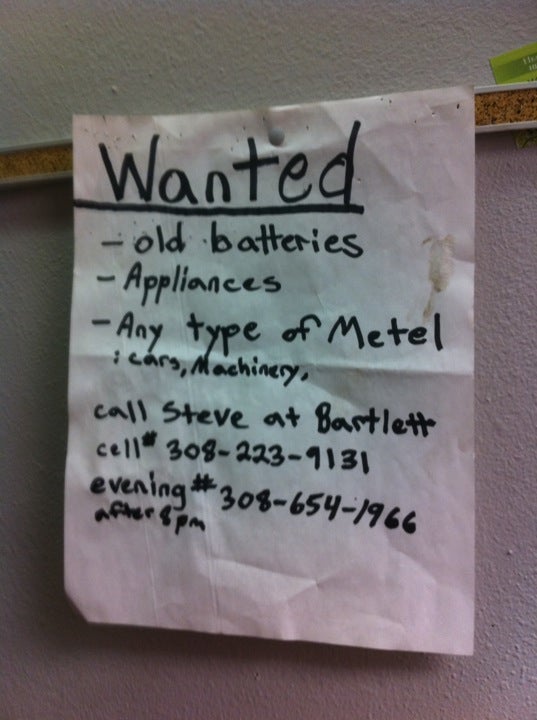 Wanted
- old batteries
- Appliances
- Any type of Metel
: cars, Machinery,
call Steve at Bartlett
cell# 308-223-9131
evening # 308-654-1966
after 8 pm